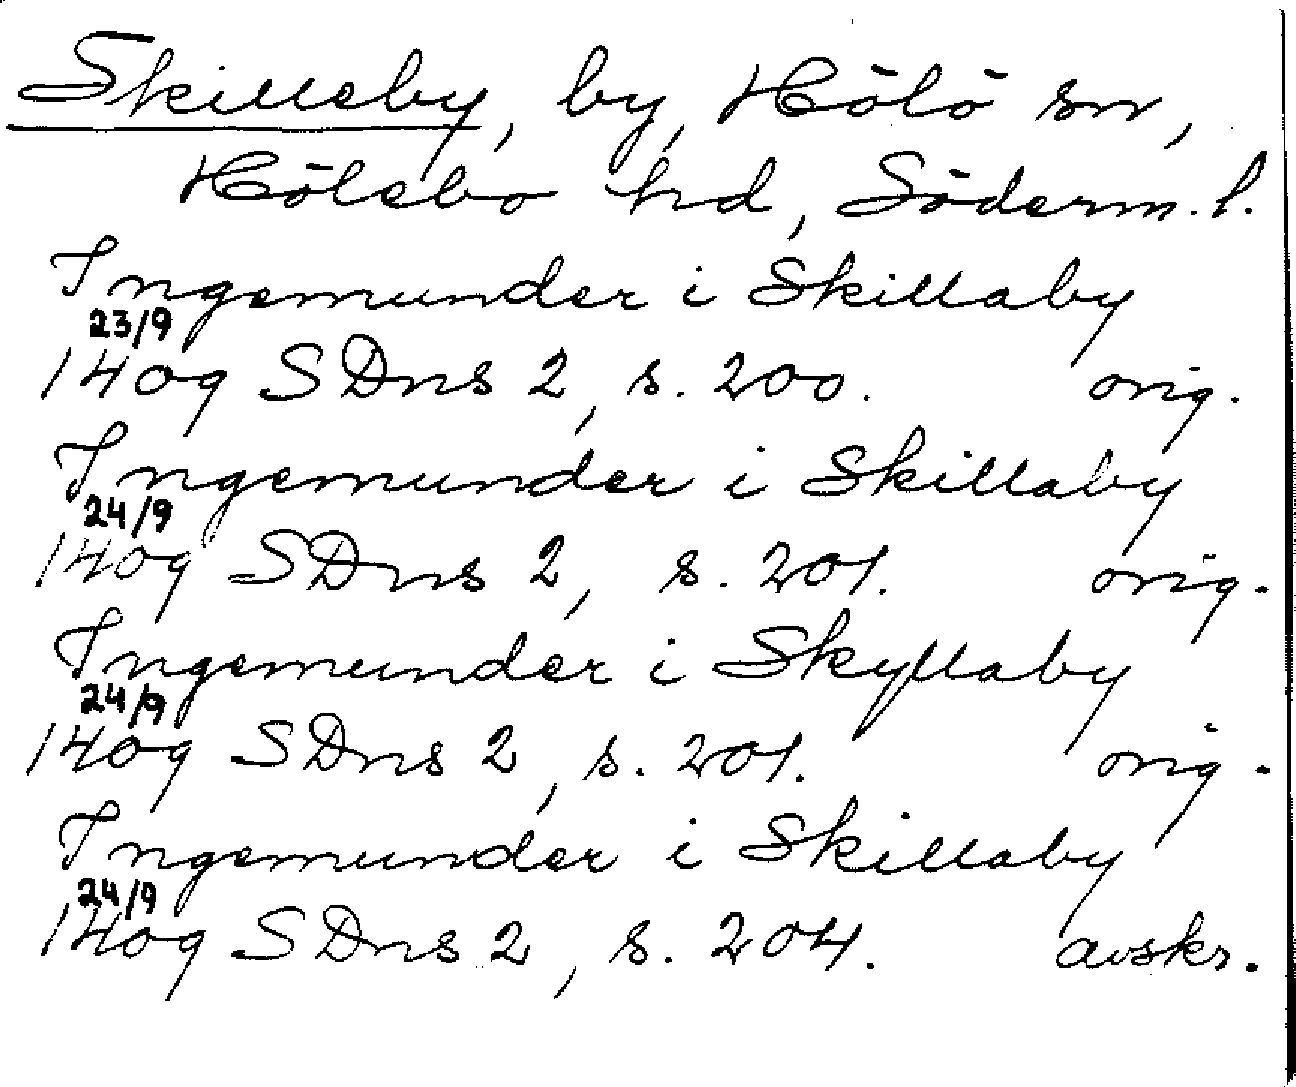 Skilleby, by, Hölö sn,
Hölebo hd, Söderm. l.
Ingemunder i Skillaby
23/9
1409 SDns 2, s. 200. orig.
Ingemunder i Skillaby
24/9
1409 SDns 2, s. 201. orig.
Ingemunder i Skyllaby
24/9
1409 SDns 2, s. 201. orig.
Ingemunder i Skillaby
24/9
1409 SDns 2, s. 204. avskr.